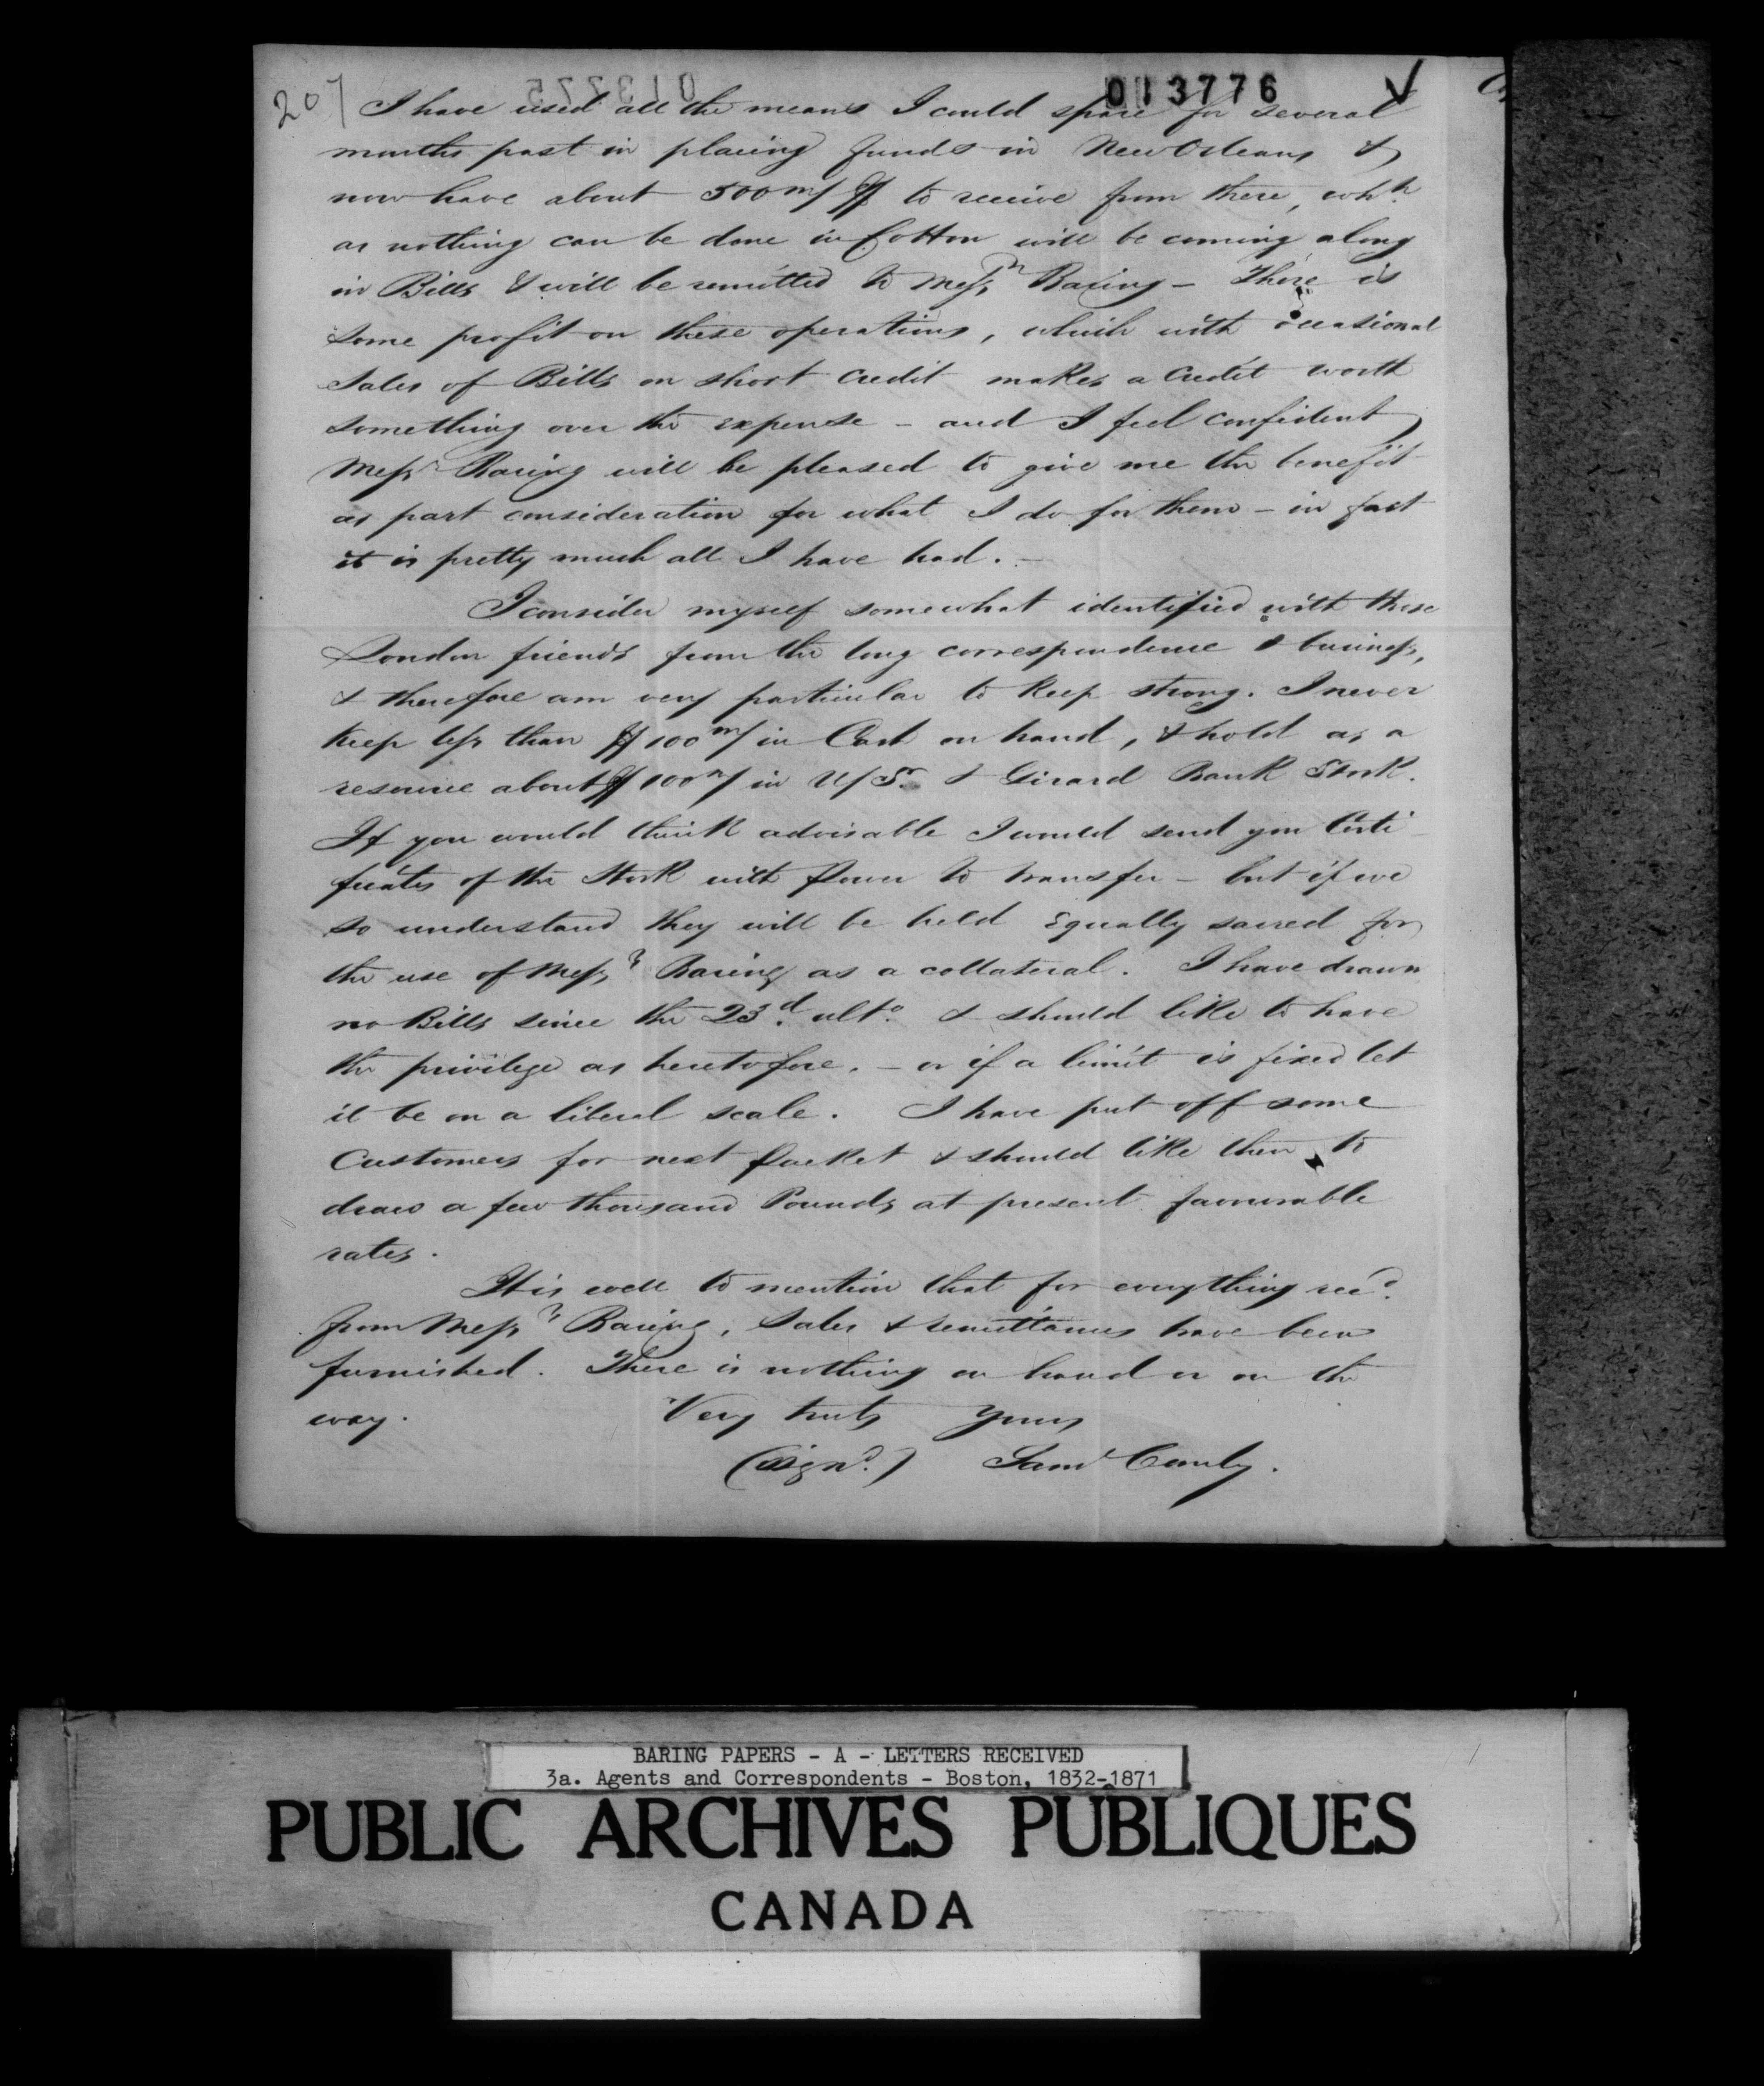 207
013776
I have used all the means I could spare for several
months past in placing funds in New Orleans &
now have about 500m/ $ to receive from there, whh
as nothing can be done in Cotton will be coming along
in Bills & will be remitted to Messrs Baring – There is
some profit on these operations, which with occasional
Sales of Bills on short Credit makes a Credit worth
something over the expense – and I feel confident
Messrs Baring will be pleased to give me the benefit
as part consideration for what I do for them – in fact
it is pretty much all I have had. –
I consider myself somewhat identified with these
London friends from the long correspondence & business,
& therefore am very particular to keep strong. I never
keep less than $100m/ in Cash on hand, & hold as a
resource about $100m/ in U/S. & Girard Bank Stock.
If you would think advisable I would send you Certi
ficates of the Stock with power to transfer – but if we
so understand they will be held Equally sacred for
the use of Messrs Baring as a collateral. I have drawn
no Bills since the 23d. ulto. & should like to have
the privilege as heretofore. – or if a limit is fixed let
it be on a liberal scale. I have put off some
Customers for next packet & should like then to
draw a few thousand Pounds at present favourable
rates.
It is well to mention that for everything recd.
from Messrs Baring, Sales & remittances have been
furnished. There is nothing on hand or on the
way. Very truly Yours
(signd.) Saml
BARING PAPERS - A - LETTERS RECEIVED
3a. Agents and Correspondents - Boston, 1832-1871
PUBLIC ARCHIVES PUBLIQUES
CANADA